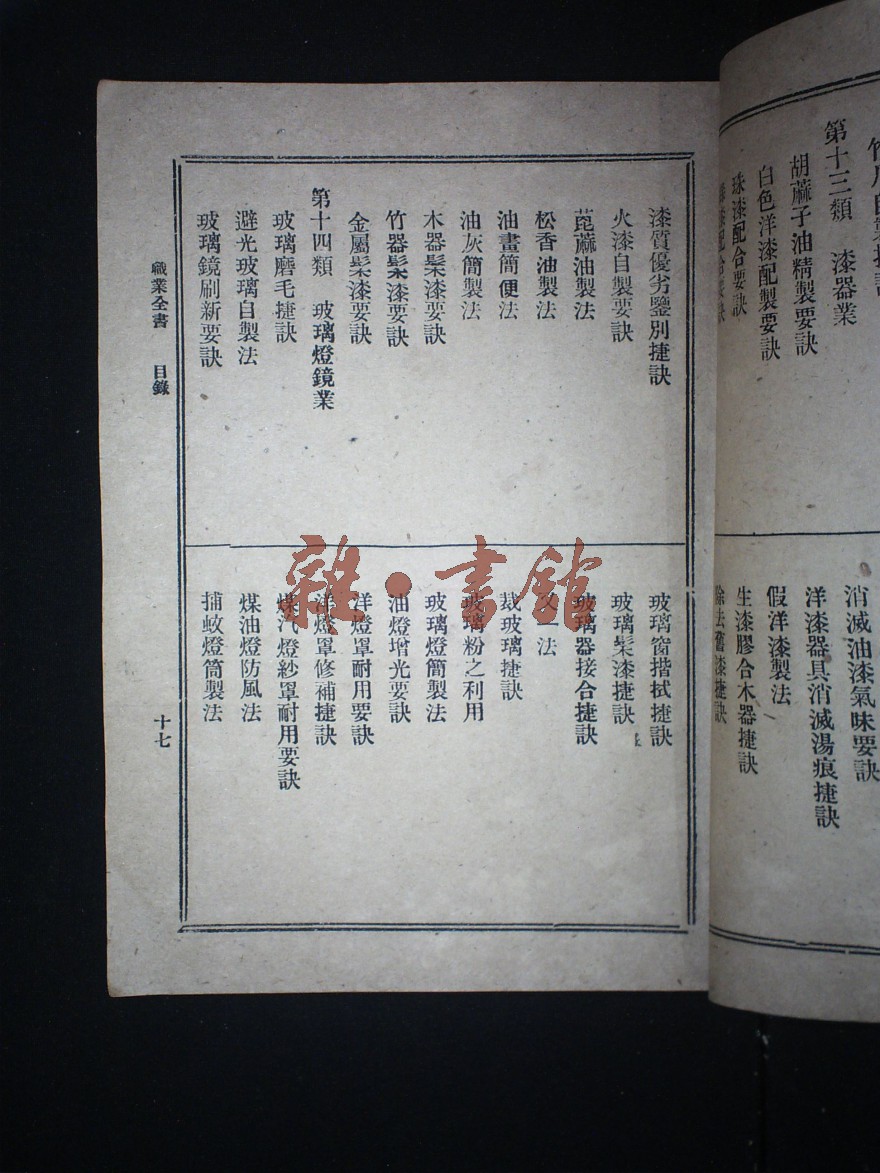 竹
第十三類　漆器業
胡蔴子油精製要訣
白色洋漆配製要訣
珠漆配合要訣
漆配合要訣
消滅油漆氣味要訣
洋漆器具消滅湯痕捷訣
假洋漆製法
生漆膠合木器捷訣
除去舊漆捷訣
漆質優劣鑒別捷訣
火漆自製要訣
蓖蔴油製法
松香油製法
油畫簡便法
油灰簡製法
木器髹漆要訣
竹器髹漆要訣
金屬髹漆要訣
第十四類　玻璃燈鏡業
玻璃磨毛捷訣
避光玻璃自製法
玻璃鏡刷新要訣
玻璃窗揩拭捷訣
玻璃髹漆捷訣
玻璃器接合捷訣
又法
裁玻璃捷訣
玻璃粉之利用
玻璃燈簡製法
油燈增光要訣
洋燈罩耐用要訣
洋燈罩修補捷訣
煤汽燈紗罩耐用要訣
煤油燈防風法
捕蚊燈筒製法
職業全書　目錄
十七
雜·書館